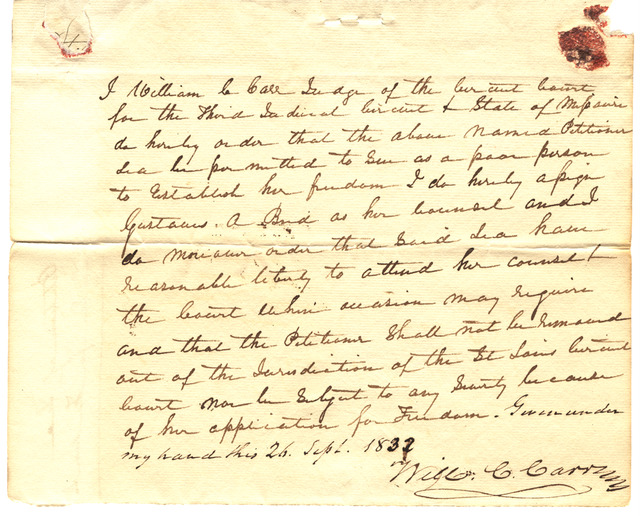 4.
I William C Carr Judge of the Circuit Court
for the Third Judicial Circuit & State of Missouri
do hereby order that the above Named Petitioner
Lea be permitted to Sue as a poor person
to Establish her freedom I do hereby assign
Gustavus. A Bird as her Counsel and I
do moreover order that Said Lea have
reasonable liberty to attend her counsel &
the Court when occasion may require
and that the Petitioner Shall not be removed
out of the Jurisdiction of the St Louis Circuit
Court nor be Subject to any Severity because
of her application for Freedom. Given under
my hand this 26. Sept. 1832
Will. C. Carr